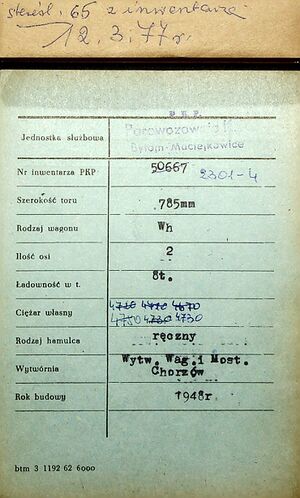 skreśl. 65 z inwentarza
12.3.77r.
P.K.P.
Jednostka służbowa
Parowozownia
Bytom-Maciejkowice
Nr inwentarza PKP
50667
2301-4
Szerokość toru
785mm
Rodzaj wagonu
Wh
Ilość osi
2
Ładowność w t.
8t.
Ciężar własny
4720 4470 4670
4750 4730 4730
Rodzaj hamulca
ręczny
Wytwórnia
Wytw. Wag.i Most.
Chorzów
Rok budowy
1948r
btm 3 1192 62 6000